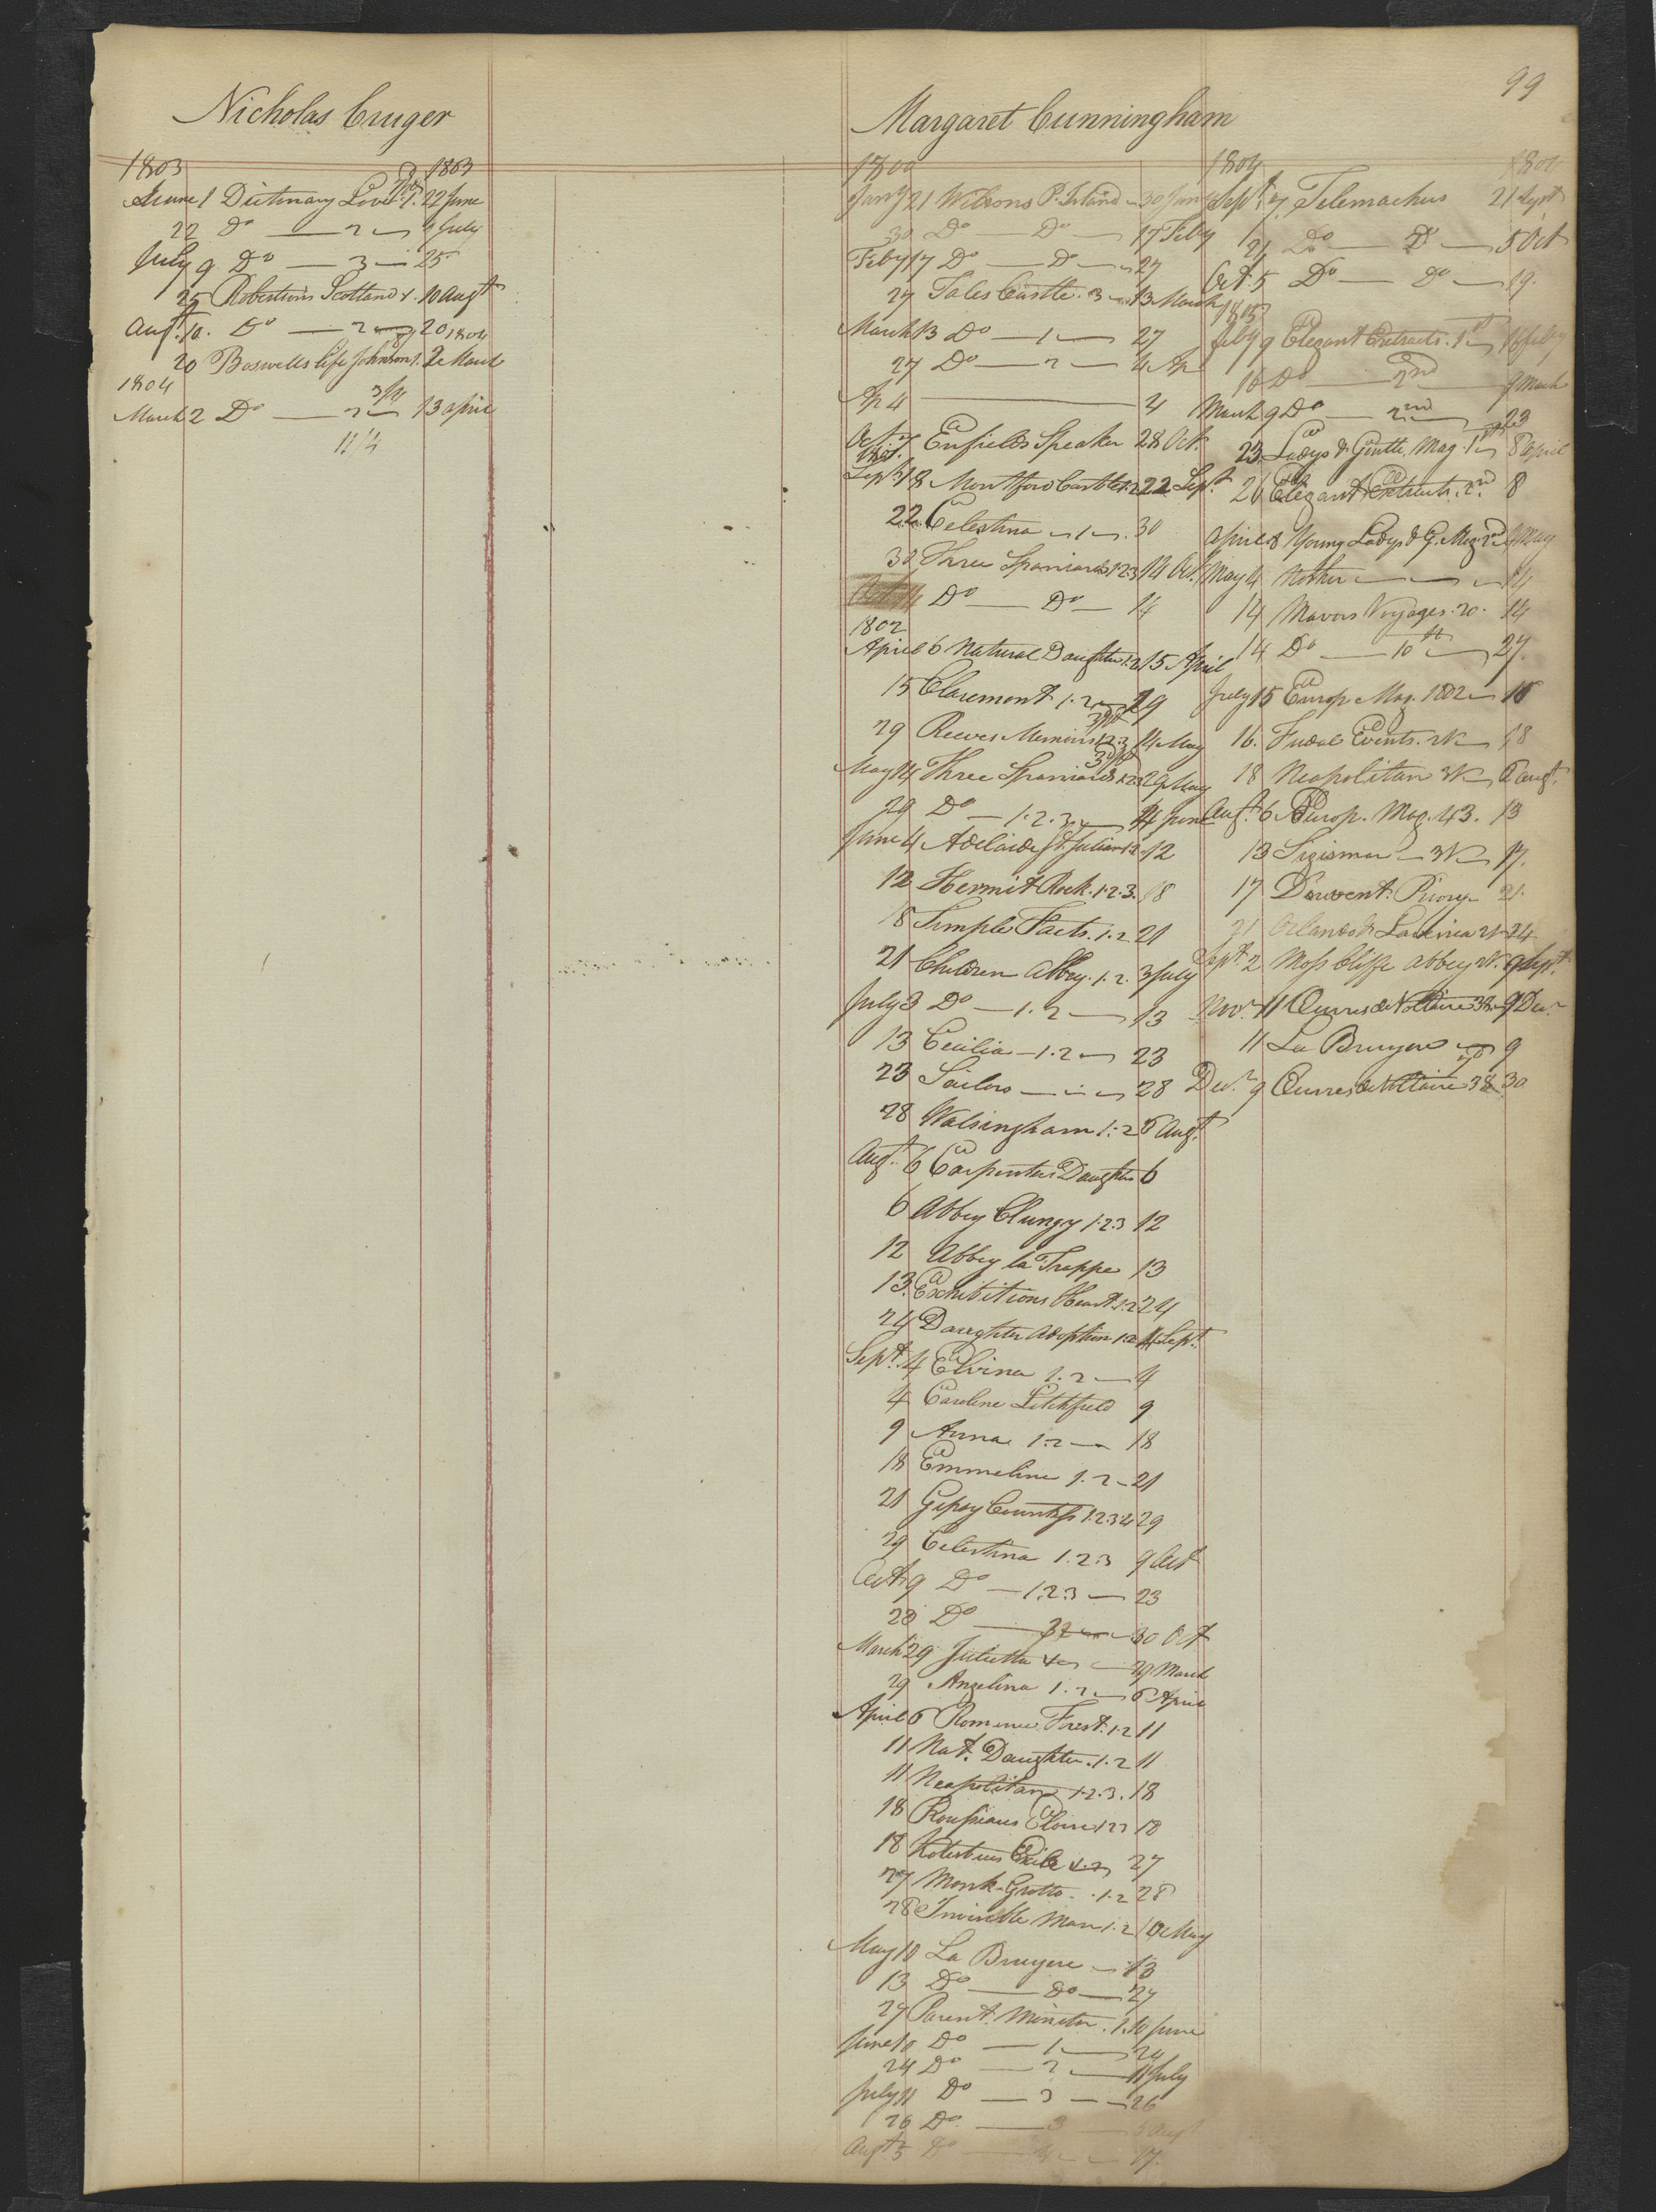 99
Nicholas Cruger
1803 1803
June 1 Dictionary Love 1. 22 June
22 Do — 2 — 9 July
July 9 Do — 3 — 25
25 Robertsons Scotland 1. 10 Augt
Augt. 10. Do — 2 — 20 1804
20 Boswells life Johnson 1. 2 March
1804
March 2 Do — 2 — 13 april
11/4
Margaret Cunningham
1800
Jany 21 Wilsons P. Island — 30 Jany
30 Do — Do — 17 Feby
Feby 17 Do — Do — 27
27 Tales Castle. 3 — 13 March
March 13 Do — 1 — 27
27 Do — 2 — 4 Ap
Ap 4 — 4
Oct. 7 Enfields Speaker 28 Oct.
Sept. 18 Montford Castle 1.2 22 Sept
22 Celestina — 1 — 30
30 Three Spaniards 1 2 3 14 Oct.
14 Do — Do — 14
1802
April 6 Natural Daughter 1.2 15 April
15 Claremont 1.2 — 29
29 Reeves Memoirs 1.2.3 14 May
May 14 Three Spaniards 1.2.3 29 May
29 Do — 1.2.3 — 4 June
June 4 Adelaide St Julian 1.2. 12
12 Hermit Rock. 1.2.3. 18
18 Simple Facts. 1.2 21
21 Children Abbey. 1.2. 3 July
July 3 Do — 1.2 — 13
13 Cecilia — 1.2 — 23
23 Sailors — 28
28 Walsingham 1.2 6 Augt.
Augt. 6 Carpenters Daughter 6
6 Abbey Clungy 1.2.3 12
12 Abbey la Trappe 13
13. Exhibitions Heart. 1.2 24
24 Daughter Adoption 1.2 4 Sept.
Sept. 4 Elvina 1.2 — 4
4 Caroline Litchfield 9
9 Anna 1.2 — 18
18 Emmeline 1.2 — 21
21 Gipsy Countess 1.2.3 4 29
29 Celestina 1.2.3 9 Oct
Oct. 9 Do — 1.2.3 — 23
23 Do — 30 Oct
March 29 Julietta — 29 March
29 Angelina 1.2 — 6 April
April 6 Romance Forest. 1.2 11
11 Nat. Daughter. 1.2 11
11 Neapolitan 1.2.3. 18
18 Rousseaus Eloise 1 2 3 18
18 Kotzebues Exile 1.2 27
27 Monk-Grotto. 1.2 28
28 Invisible Man 1.2 10 May
May 10 La Bruyere — 13
13 Do — Do — 27
27 Parent. Minster. 1. 10 June
June 10 Do — 1 — 24
24 Do — 2 — 11 July
July 11 Do — 3 — 26
26 Do — 3 — 5 Augt
Augt 5 Do — 17.
1804 1804
Sept. 7 Telemachus 21 Sept
21 Do — Do — 5 Oct
Oct. 5 Do — Do — 19.
1805
Feby 9 Elegant Extracts. 1st — 16 feby
16 Do — 2nd — 9 March
March 9 Do — 2nd — 23
23 Ladys & Gentle. Mag. 1 — 8 April
26 Elegant Extracts. 2nd. 8
April 8 Young Ladys & G. Mag. 2nd 4 May
May 4 Mother — 14
14 Mavors Voyages. 20. 14
14 Do — 10th — 27.
July 15 Europ Mag. 1802 — 16
16. Fudal Events. 2V — 18
18 Neapolitan 3V — 6 Augt.
Augt. 6 Europ. Mag. 43. 13
13 Sigismar — 3V — 17.
17 Derwent. Priory — 21.
21 Orlando & Lavinia 2V 24
Sept. 2 Moss Cliffe Abbey 2V. 9 Sept.
Nov. 11 Œuvres de Voltaire 38. 9 Decr
11 La Bruyere — 9
Decr. 9 Œuvres de Voltaire 38 30